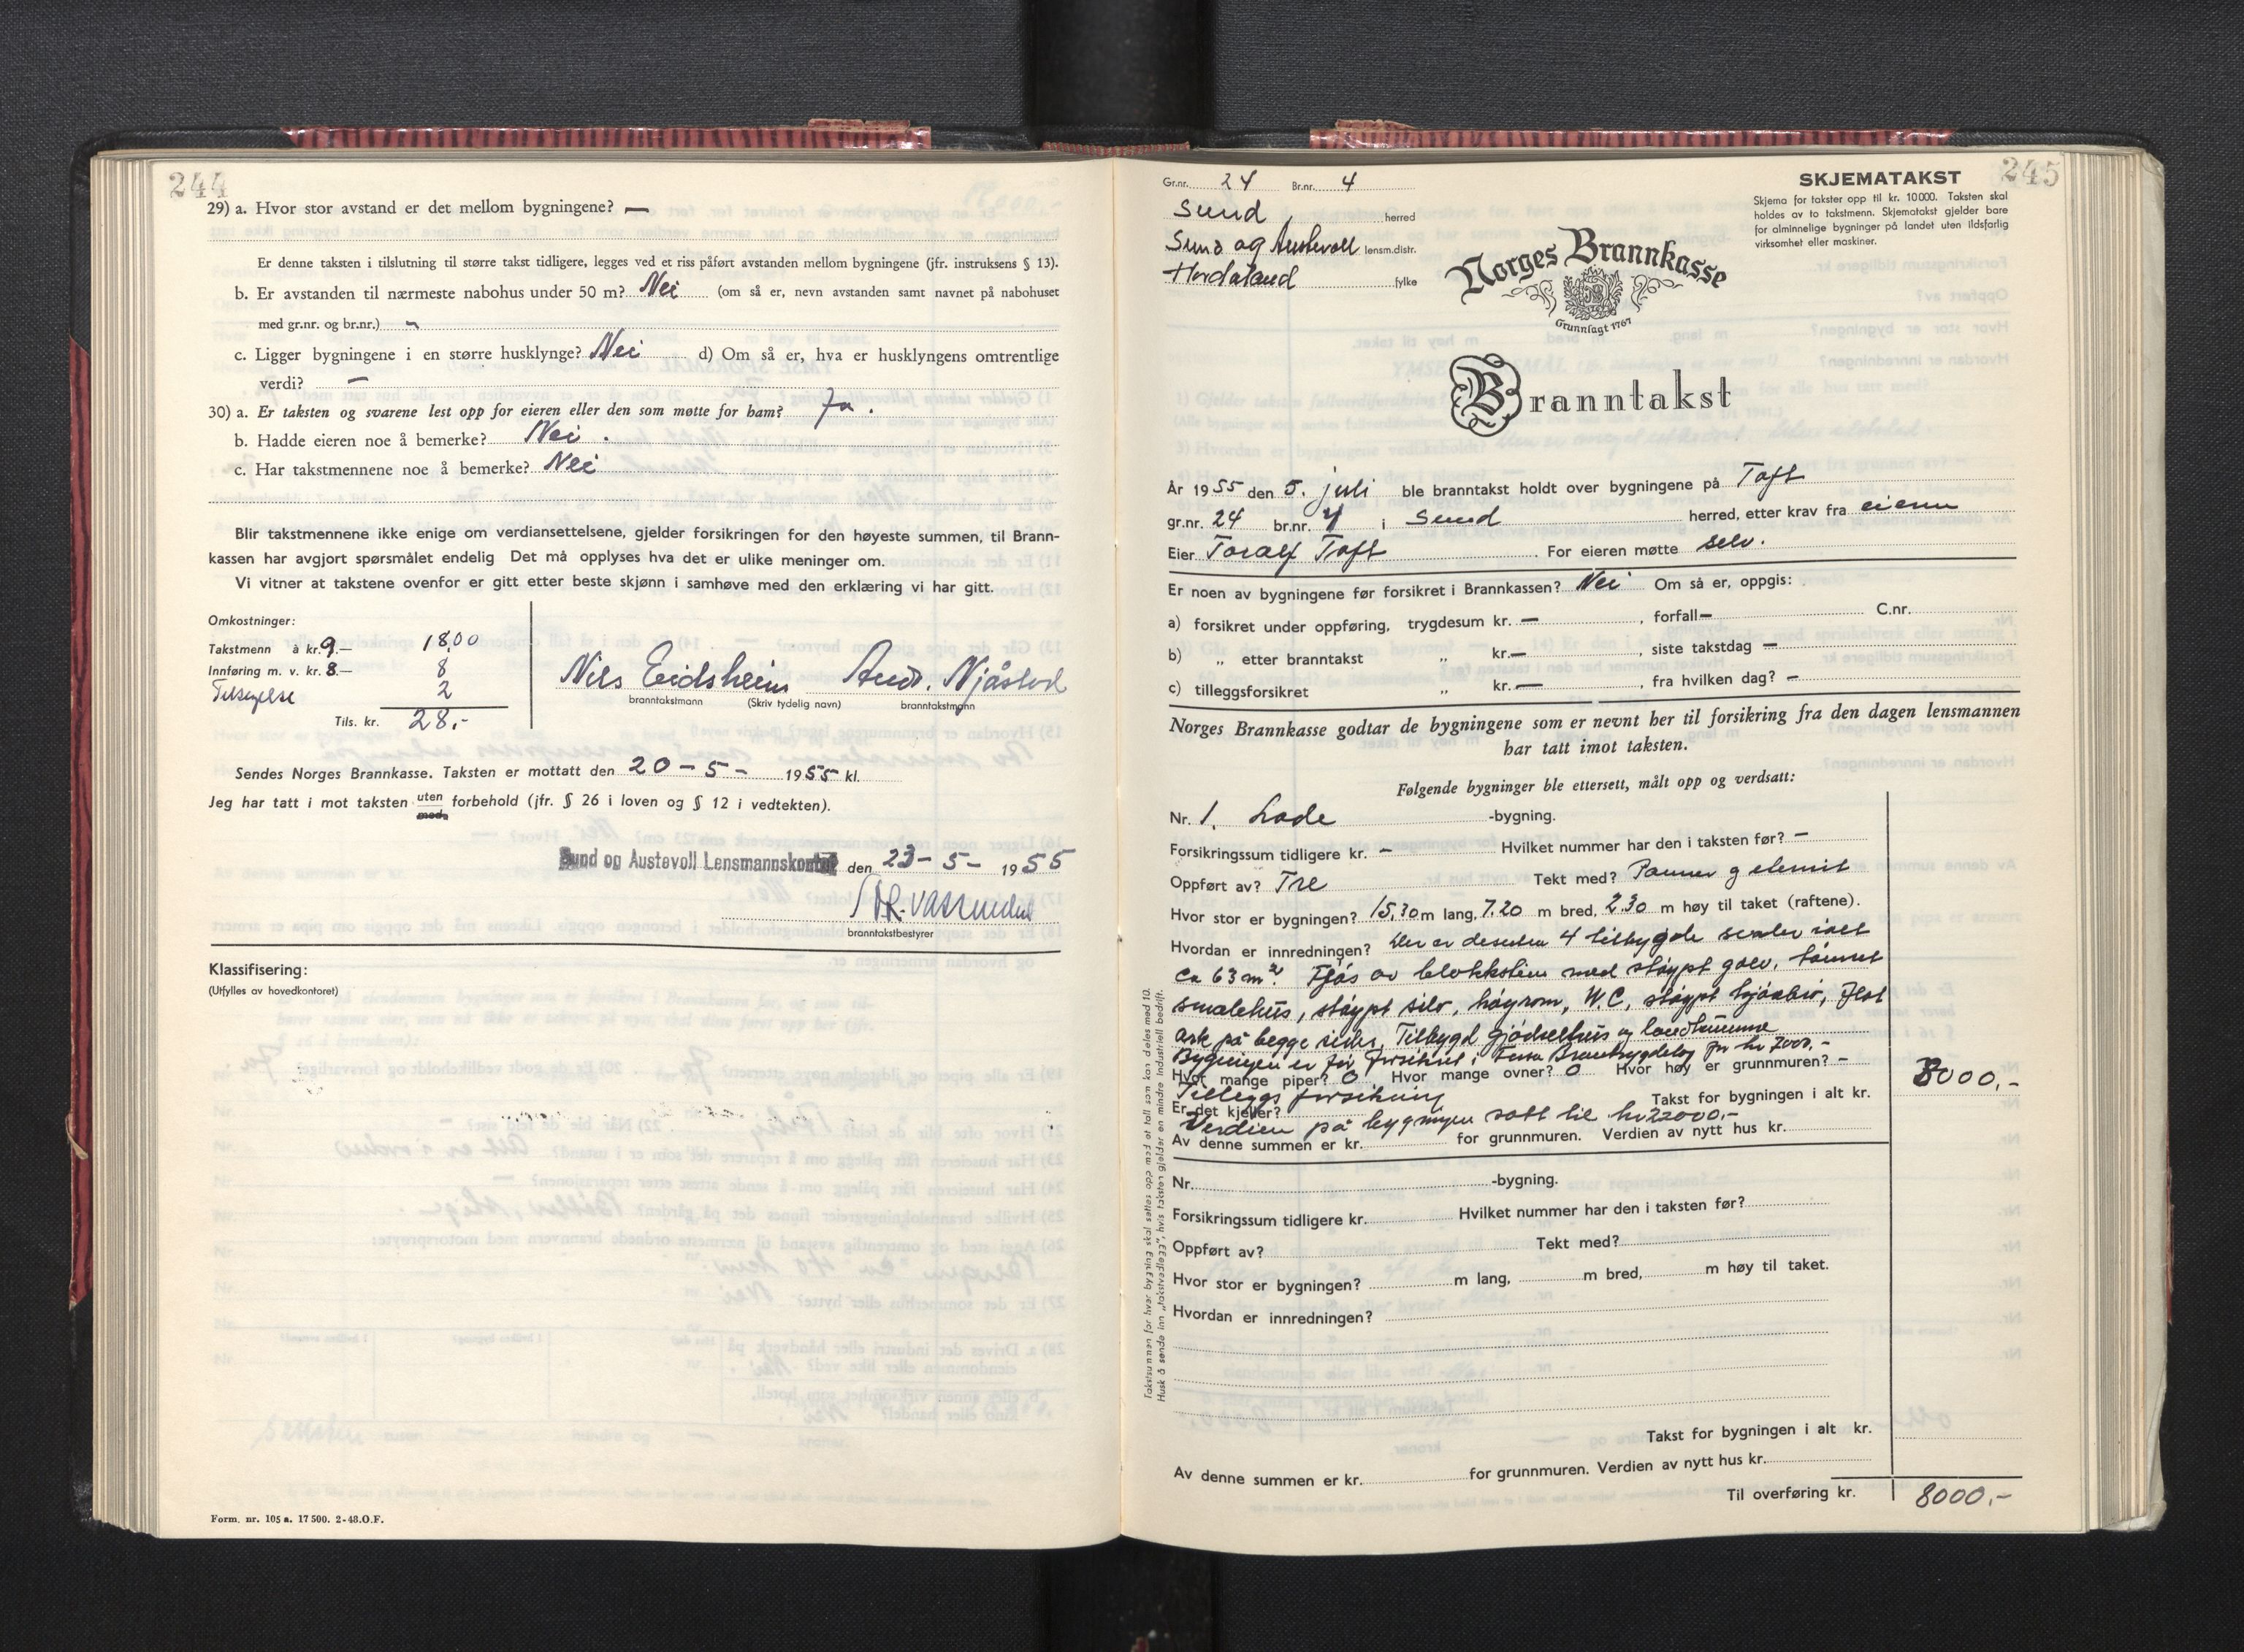 244
29) a. Hvor stor avstand er det mellom bygningene? —
Er denne taksten i tilslutning til større takst tidligere, legges ved et riss påført avstanden mellom bygningene (jfr. instruksens § 13).
b. Er avstanden til nærmeste nabohus under 50 m? Nei (om så er, nevn avstanden samt navnet på nabohuset
med gr.nr. og br.nr.) -
c. Ligger bygningene i en større husklynge? Nei d) Om så er, hva er husklyngens omtrentlige
verdi? —
30) a. Er taksten og svarene lest opp for eieren eller den som møtte for ham? Ja.
b. Hadde eieren noe å bemerke? Nei.
c. Har takstmennene noe å bemerke? Nei
Blir takstmennene ikke enige om verdiansettelsene, gjelder forsikringen for den høyeste summen, til Brann-
kassen har avgjort spørsmålet endelig Det må opplyses hva det er ulike meninger om.
Vi vitner at takstene ovenfor er gitt etter beste skjønn i samhøve med den erklæring vi har gitt.
Omkostninger:
Takstmenn à kr. 9.— 18.00
Innføring m. v. kr. 8.— 8
2
Tils. kr. 28.-
Nils Eidsheim And. Njåstad
branntakstmann (Skriv tydelig navn) branntakstmann
Sendes Norges Brannkasse. Taksten er mottatt den 20-5- 1955 kl.
Jeg har tatt i mot taksten uten forbehold (jfr. § 26 i loven og § 12 i vedtekten).
med
Sund og Austevoll Lensmannskontor den 23-5- 1955
branntakstbestyrer
Klassifisering:
(Utfylles av hovedkontoret)
Form. nr. 105 a. 17 500. 2-48.O.F.
245
Gr.nr. 24 Br.nr. 4
Sund, herred
Sund og Austevoll lensm.distr.
Hordaland fylke
SKJEMATAKST
Skjema for takster opp til kr. 10000. Taksten skal
holdes av to takstmenn. Skjematakst gjelder bare
for alminnelige bygninger på landet uten ildsfarlig
virksomhet eller maskiner.
Norges Brannkasse
Grunnlagt 1767
Branntakst
År 1955 den 5. juli ble branntakst holdt over bygningene på Toft
gr.nr. 24 br.nr. 4 i Sund herred, etter krav fra eieren
Eier Toralf Toft For eieren møtte selv.
Er noen av bygningene før forsikret i Brannkassen? Nei Om så er, oppgis:
a) forsikret under oppføring, trygdesum kr. — , forfall — C.nr.
b) „ etter branntakst „ kr. — , siste takstdag —
c) tilleggsforsikret „ kr. — , fra hvilken dag? —
Norges Brannkasse godtar de bygningene som er nevnt her til forsikring fra den dagen lensmannen
har tatt imot taksten.
Følgende bygninger ble ettersett, målt opp og verdsatt:
Nr. 1. Lade -bygning.
Forsikringssum tidligere kr. - Hvilket nummer har den i taksten før? -
Oppført av? Tre Tekt med? Panner og eternit
Hvor stor er bygningen? 15,30 m lang, 7.20 m bred, 2.30 m høy til taket (raftene).
Hvordan er innredningen? Der er desuten 4 tilbygde skaler ialt
ca 63 m². Fjøs av blokkstein med støypt golv, tømret
smalehus, støypt silo, høyrom, W.C, støypt kjørebro, Flat
ark på begge sider, Tilbygd gjødselhus og landkumme
Bygningen er før forsikret i Brandtrygdelag for kr 7000.-
Hvor mange piper? 0 Hvor mange ovner? 0 Hvor høy er grunnmuren? -
Tilleggsforsikring
Er det kjeller? Takst for bygningen i alt kr. 8000,-
Verdien på bygningen satt til kr 22000.-
Av denne summen er kr. for grunnmuren. Verdien av nytt hus kr.
Nr. -bygning.
Forsikringssum tidligere kr. Hvilket nummer har den i taksten før?
Oppført av? Tekt med?
Hvor stor er bygningen? m lang, m bred, m høy til taket.
Hvordan er innredningen?
Takst for bygningen i alt kr.
Av denne summen er kr. for grunnmuren. Verdien av nytt hus kr.
Til overføring kr. 8000,-
Takstsummen for hver bygning skal settes opp med et tall som kan deles med 10.
Husk å sende inn „takstvedlegg", hvis taksten gjelder en mindre industriell bedrift.